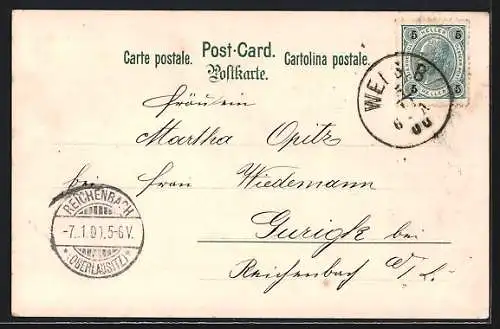 Carte postale. Post-Card. Cartolina postale.
Postkarte.
5 HELLER 5
5 HELLER 5
Fräulein
Martha Opitz
bei Frau Wiedemann
Gurigk bei
Reichenbach O/L.
REICHENBACH
-7.1.01.5-6V.
* (OBERLAUSITZ) *